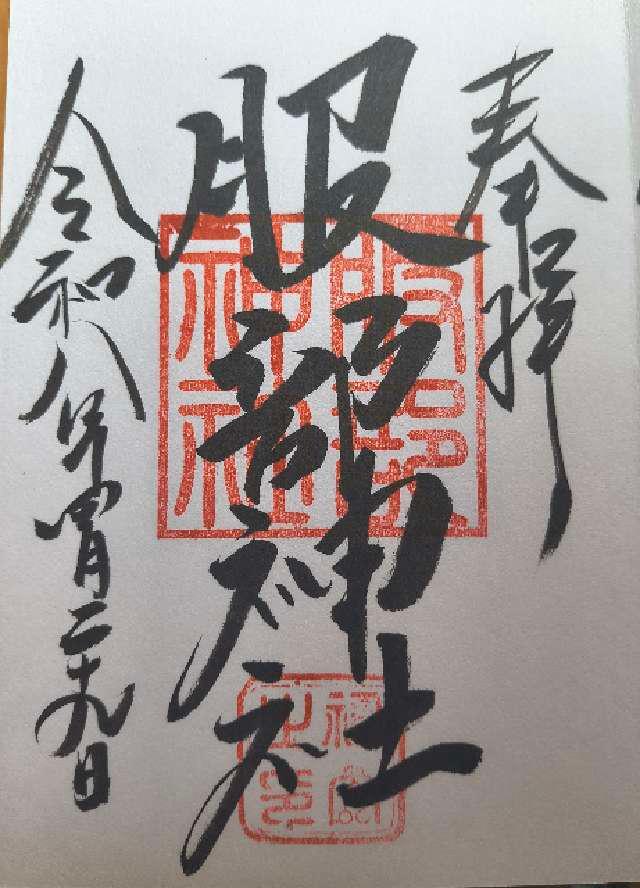 奉拝
服部神社
令和八年四月二十九日
服部神社